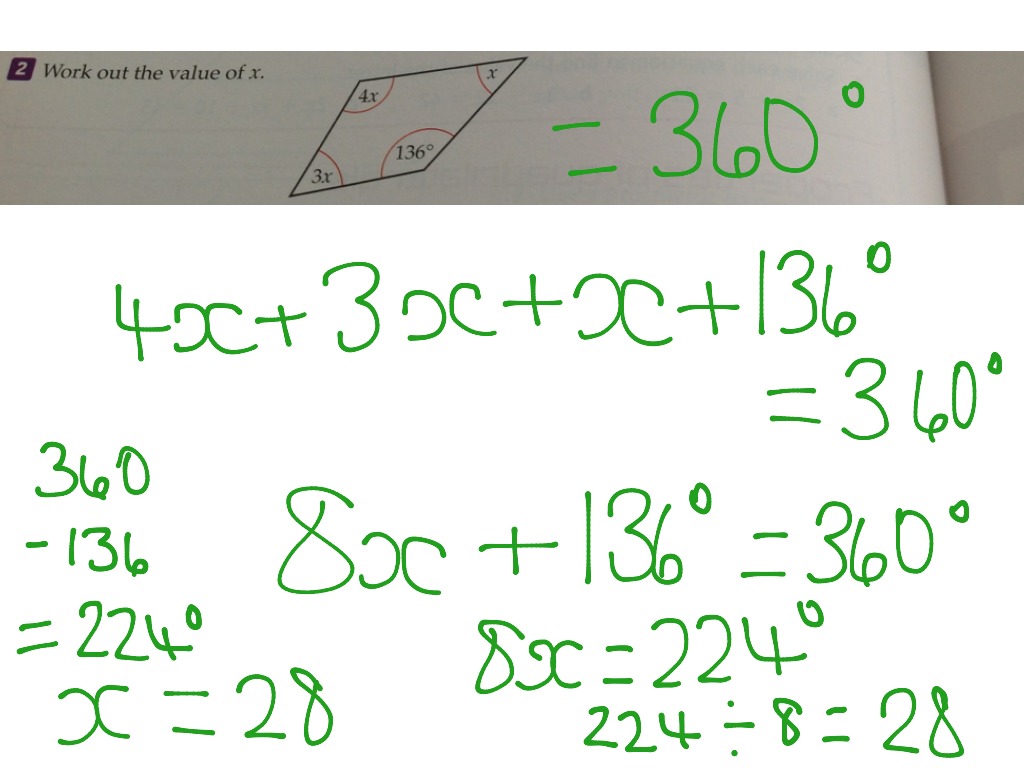 2 Work out the value of x.
4x
x
136°
3x
= 360°
4x + 3x + x + 136°
= 360°
360
- 136
= 224°
8x + 136° = 360°
8x = 224°
x = 28
224 ÷ 8 = 28